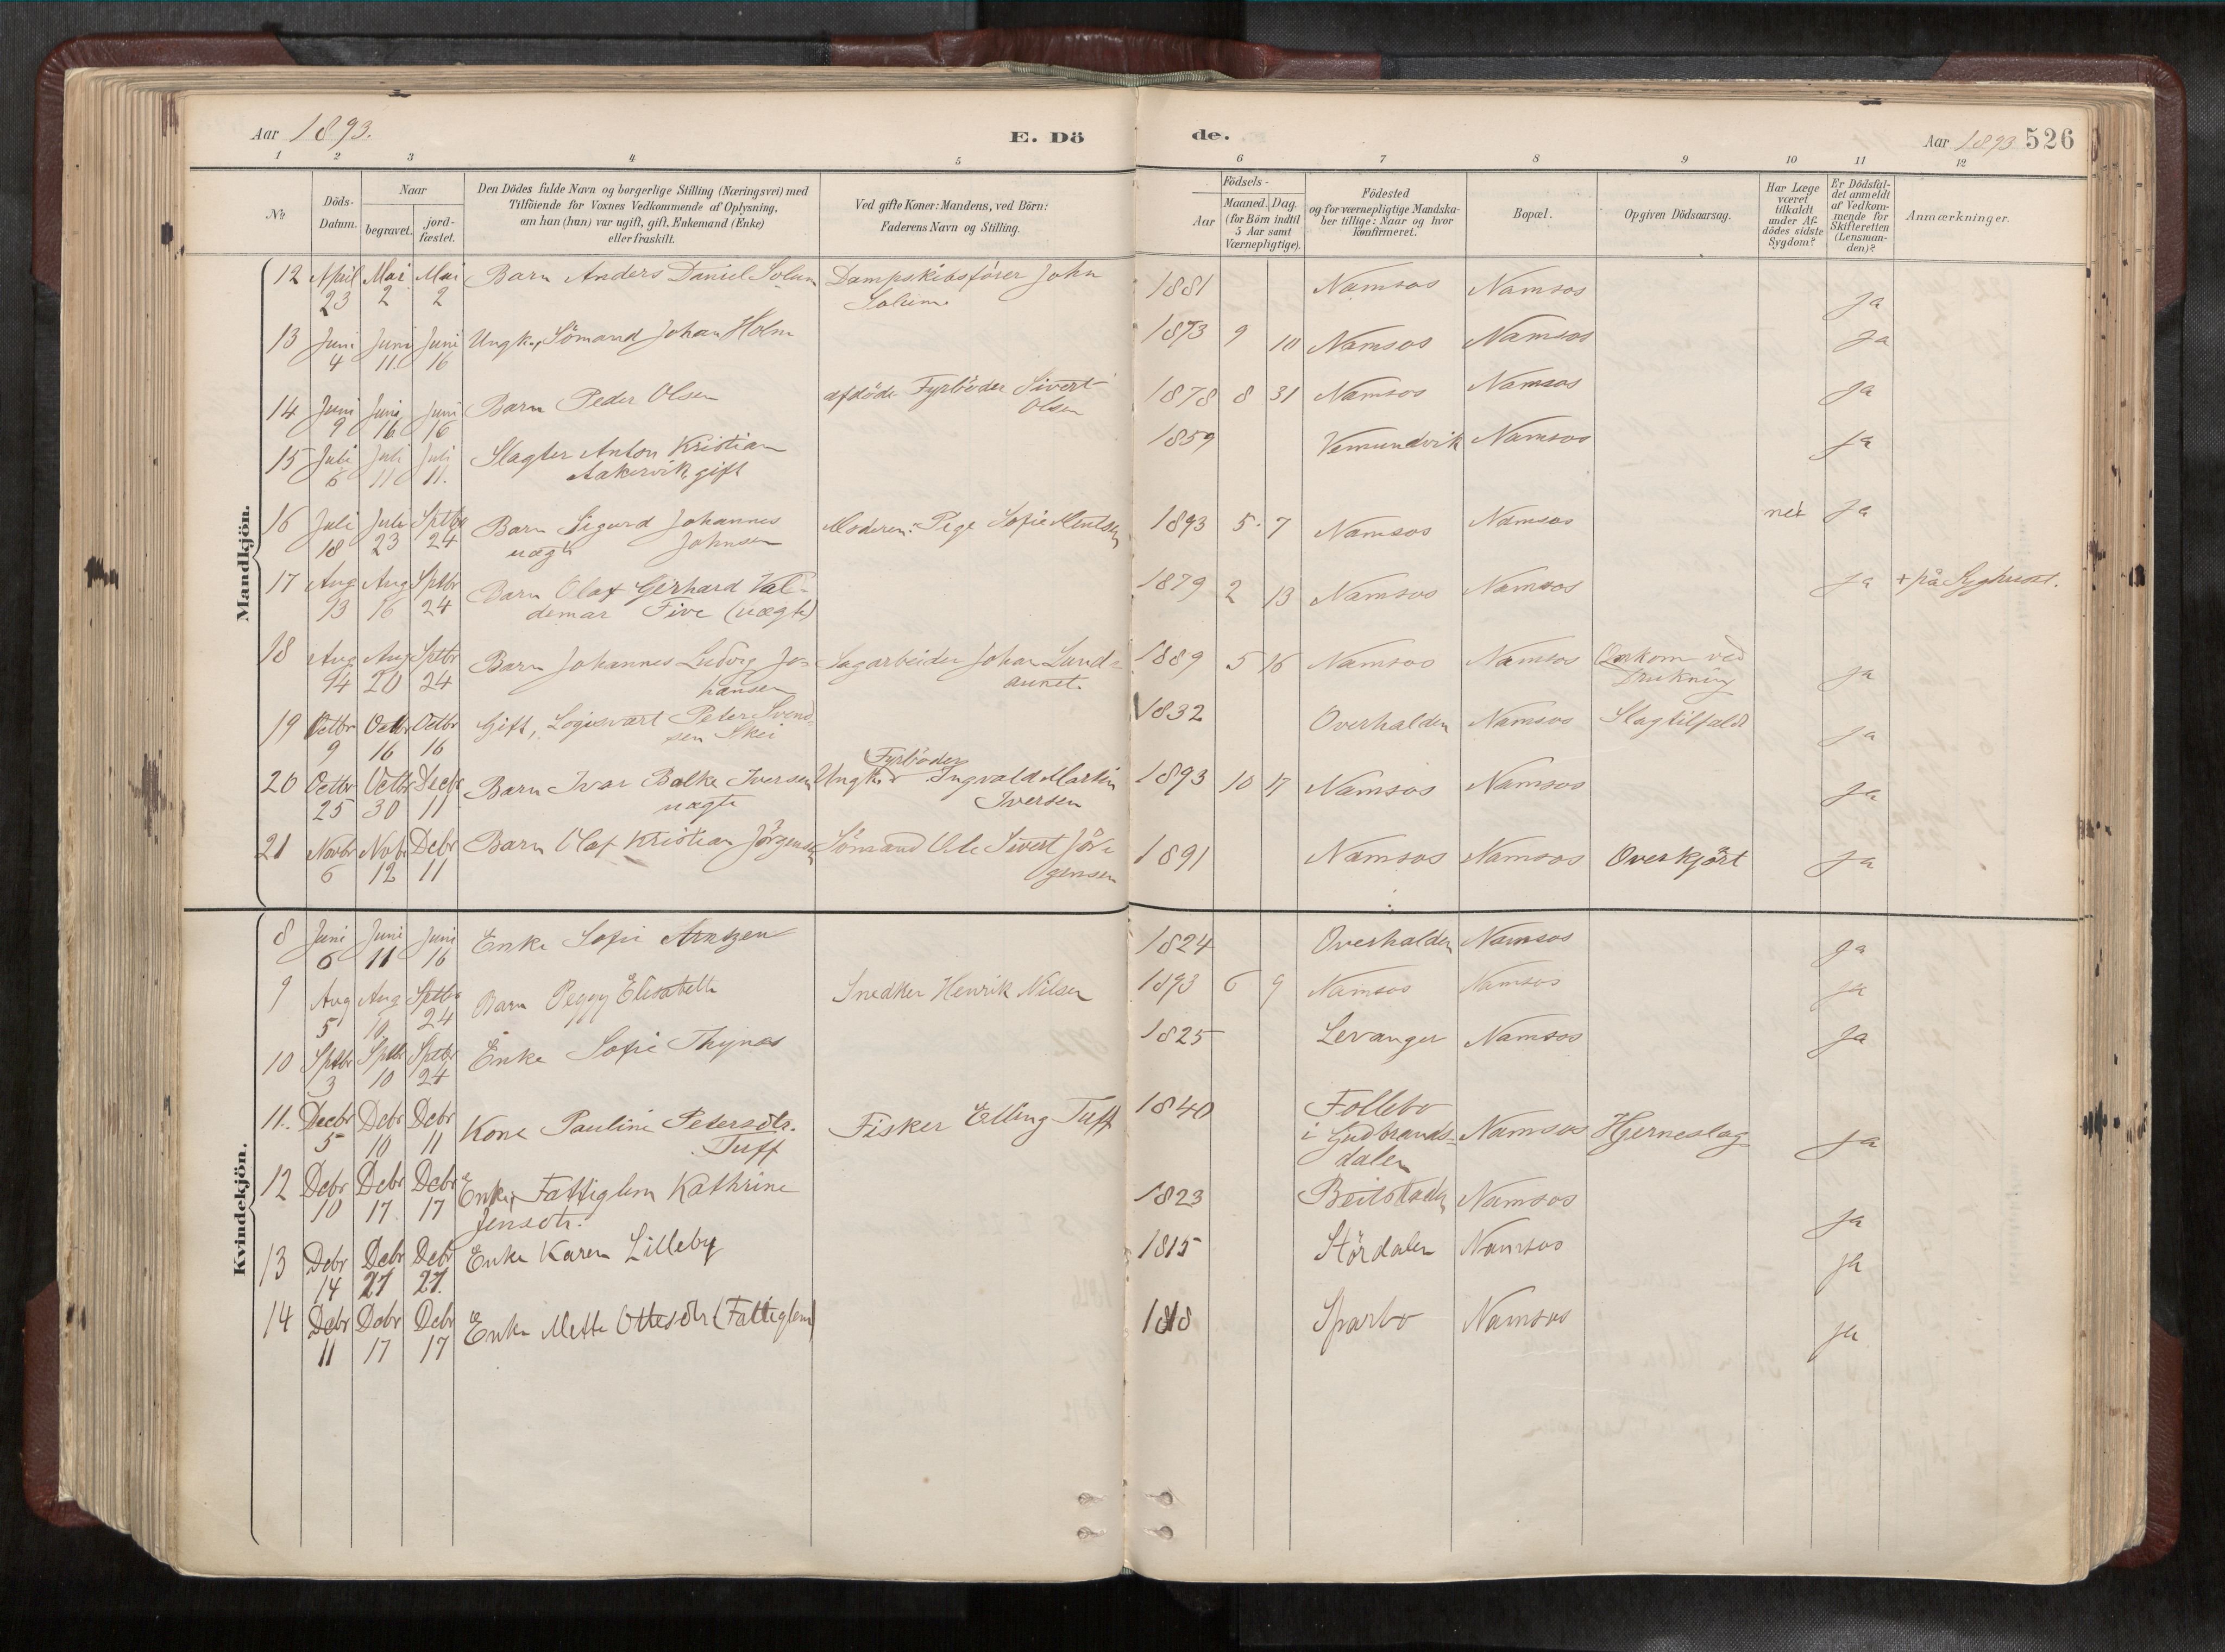 Aar 1893.
E. Dö
de.
Aar 1893 526
1 2 3 4 5 6 7 8 9 10 11 12
№
Döds-Datum.
Naar
begravet.
jord-fæstet.
Den Dödes fulde Navn og borgerlige Stilling (Næringsvei) med
Tilföiende for Voxnes Vedkommende af Oplysning,
om han (hun) var ugift, gift, Enkemand (Enke)
eller fraskilt.
Ved gifte Koner: Mandens, ved Börn:
Faderens Navn og Stilling.
Födsels-
Aar
Maaned. Dag.
(for Börn indtil
5 Aar samt
Værnepligtige).
Födested
og for værnepligtige Mandska-
ber tillige: Naar og hvor
konfirmeret.
Bopæl.
Opgiven Dödsaarsag.
Har Læge
været
tilkaldt
under Af-
dödes sidste
Sygdom?
Er Dödsfal-
det anmeldt
af Vedkom-
mende for
Skifteretten
(Lensman-
den)?
Anmærkninger.
Mandkjön.
12 April 23 Mai 2 Mai 2 Barn Anders Daniel Solum Dampskibsförer John Solum 1881 Namsos Namsos Ja
13 Juni 4 Juni 11. Juni 16 Ungk., Sömand Johan Holm 1873 9 10 Namsos Namsos Ja
14 Juni 9 Juni 16 Juni 16 Barn Peder Olsen afdöde Fyrböder Sivert Olsen 1878 8 31 Namsos Namsos Ja
15 Juli 6 Juli 11 Juli 11. Slagter Anton Kristian Aakervik, gift 1859 Vemundvik Namsos Ja
16 Juli 18 Juli 23 Sptbr 24 Barn Sigurd Johannes Johnsen uægte Moderen: Pige Sofie 1893 5. 7 Namsos Namsos nei Ja
17 Aug 13 Aug 16 Sptbr 24 Barn Olaf Gerhard Val-
demar Five (uægte) 1879 2 13 Namsos Namsos Ja + på Syghuset.
18 Aug 14 Aug 20 Sptbr 24 Barn Johannes Ludvig Jo-
hansen Sagarbeider Johan Lund-
aunet. 1889 5 16 Namsos Namsos Omkom ved Drukning Ja
19 Octbr 9 Octbr 16 Octbr 16 Gift, Logisvært Peter Svend-
sen Skei 1832 Overhalden Namsos Slagtilfald Ja
20 Octbr 25 Octbr 30 Decbr 11 Barn Ivar Balke Iversen uægte Ungk. Fyrböder Ingvald Martin Iversen 1893 10 17 Namsos Namsos Ja
21 Novbr 6 Nvbr 12 Debr 11 Barn Olaf Kristian Jörgensen Sömand Ole Sivert Jör-
gensen 1891 Namsos Namsos Overkjört Ja
Kvindekjön.
8 Juni 6 Juni 11 Juni 16 Enke Sofie Arntzen 1824 Overhalden Namsos Ja
9 Aug 5 Aug 10 Sptbr 24 Barn Peggy Elisabeth Snedker Henrik Nilsen 1893 6 9 Namsos Namsos Ja
10 Sptbr 3 Sptbr 10 Sptbr 24 Enke Sofie Thynæs 1825 Levanger Namsos Ja
11. Decbr 5 Debr 10 Debr 11 Kone Pauline Petersdtr. Tuff Fisker Elling Tuff 1840 Follebo
i Gudbrands-
dalen Namsos Hjerneslag Ja
12 Debr 10 Debr 17. Debr 17 Enke, Fattiglem Kathrine Jensdtr. 1823 Beitstaden Namsos Ja
13 Debr 14 Debr 27 Debr 27. Enke Karen Lilleby 1815 Stördalen Namsos Ja
14 Debr 11 Debr 17 Debr 17 Enke Mette Ottesdtr (Fattiglem) 1818 Sparbo Namsos Ja